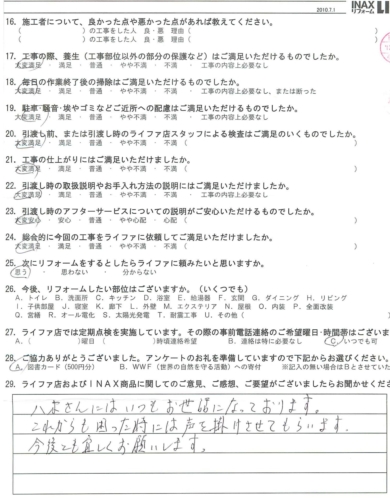 INAX
リフォーム LI
2010.7.1
16. 施工者について、良かった点や悪かった点があれば教えてください。
( )の工事をした人 良・悪 理由(
( )の工事をした人 良・悪 理由(
17. 工事の際、養生(工事部位以外の部分の保護など)はご満足いただけるものでしたか。
大変満足 ・ 満足 ・ 普通 ・ やや不満 ・ 不満 ・ 工事の内容上必要なし
18. 毎日の作業終了後の掃除はご満足いただけるものでしたか。
大変満足 ・ 満足 ・ 普通 ・ やや不満 ・ 不満 ・ 工事の内容上必要なし、または断った
19. 駐車・騒音・埃やゴミなどご近所への配慮はご満足いただけるものでしたか。
大変満足 ・ 満足 ・ 普通 ・ やや不満 ・ 不満 ・ 工事の内容上必要なし
20. 引渡し前、または引渡し時のライファ店スタッフによる検査はご満足のいくものでしたか。
大変満足 ・ 満足 ・ 普通 ・ やや不満 ・ 不満 (
21. 工事の仕上がりにはご満足いただけましたか。
大変満足 ・ 満足 ・ 普通 ・ やや不満 ・ 不満 (
22. 引渡し時の取扱説明やお手入れ方法の説明にはご満足いただけましたか。
大変満足 ・ 満足 ・ 普通 ・ やや不満 ・ 不満 ・ 工事の内容上必要なし
23. 引渡し時のアフターサービスについての説明がご安心いただけるものでしたか。
大変安心 ・ 安心 ・ 普通 ・ やや心配 ・ 心配 (
24. 総合的に今回の工事をライファに依頼してご満足いただけましたか。
大変満足 ・ 満足 ・ 普通 ・ やや不満 ・ 不満 (
25. 次にリフォームをするとしたらライファに頼みたいと思いますか。
思う ・ 思わない ・ 分からない
26. 今後、リフォームしたい部位はございますか。(いくつでも)
A. トイレ B. 洗面所 C. キッチン D. 浴室 E. 給湯器 F. 玄関 G. ダイニング H. リビング
I. 子供部屋 J. 寝室 K. 廊下 L. 外壁 M. エクステリア N. 屋根 O. 内装 P. 全面改装
Q. 窓轄 R. オール電化 S. 太陽光発電 T. 耐震工事 U. その他(
27. ライファ店では定期点検を実施しています。その際の事前電話連絡のご希望曜日・時間帯はございま
A. ( )曜日 ( )時頃連絡希望 B. 連絡は特に必要なし C. いつでも可
28. ご協力ありがとうございました。アンケートのお礼を準備していますので下記からお選びください。
A. 図書カード(500円分) B. WWF(世界の自然を守る活動)への寄付 ※記入の無い場合はBとさせていた
29. ライファ店およびINAX商品に関してのご意見、ご感想、ご要望がございましたらお聞かせくださ
八木さんにはいつもお世話になっております。
これからも困った時には声を掛けさせてもらいます。
今後とも宜しくお願いします。